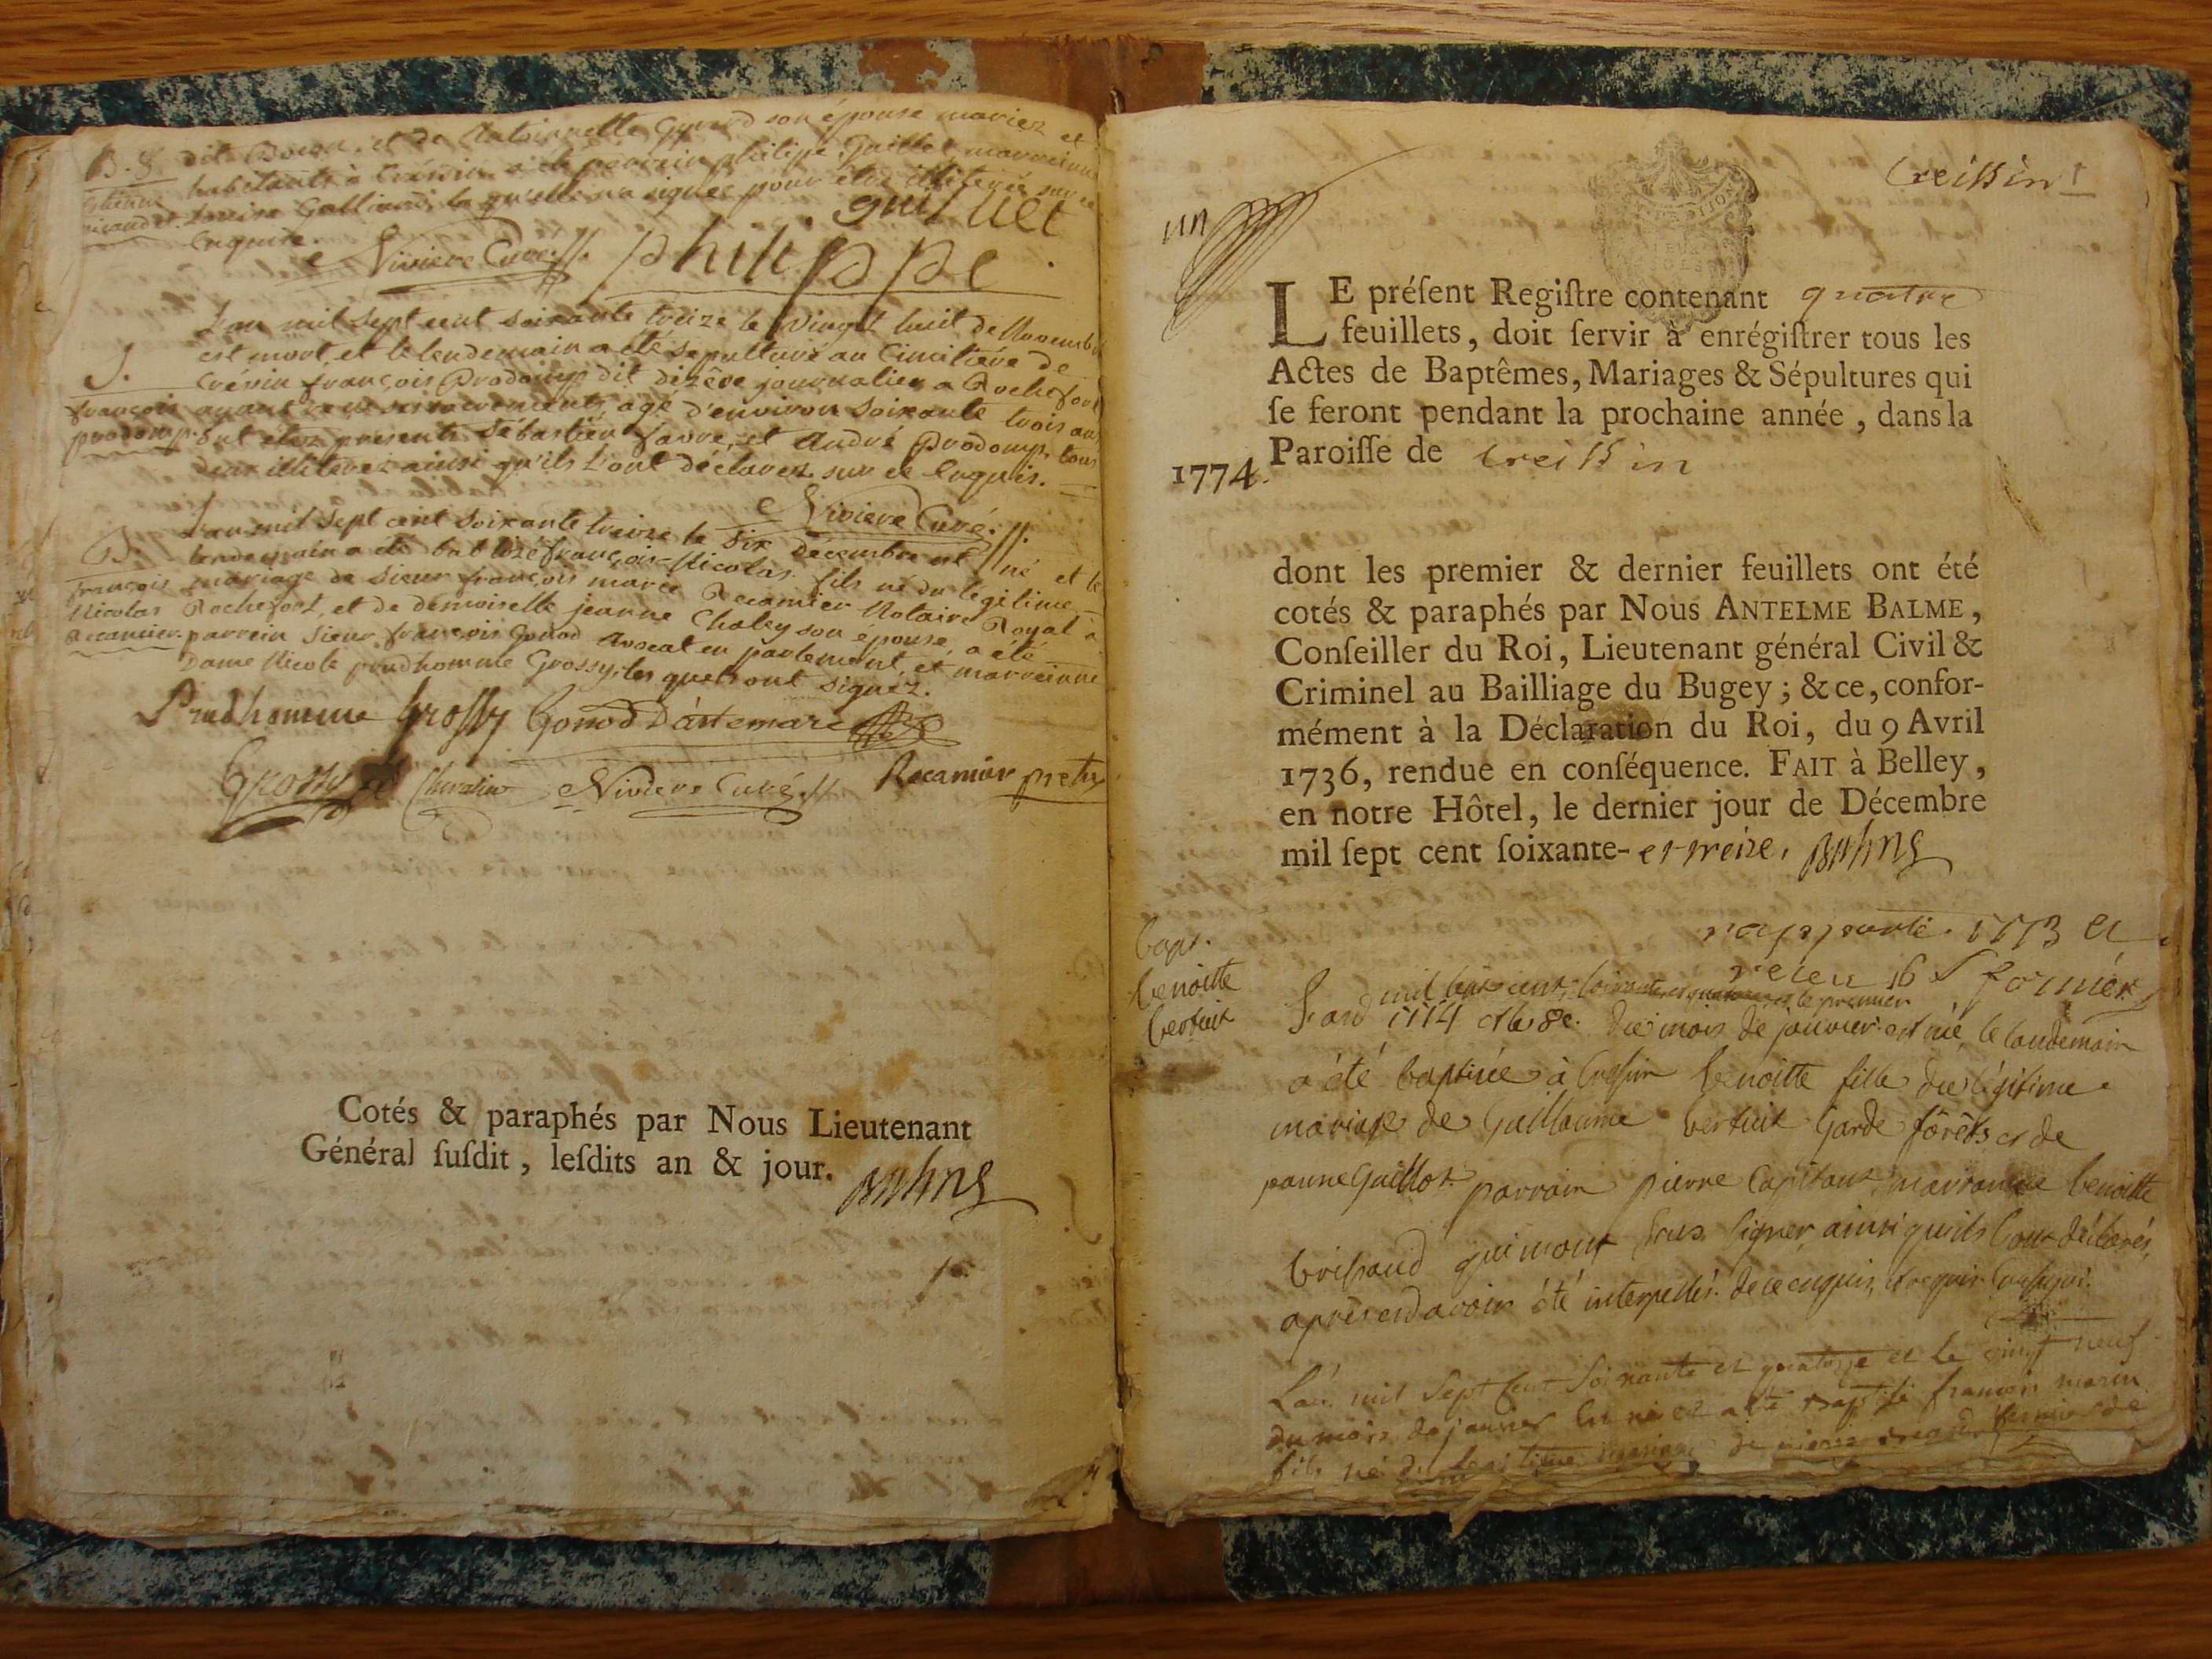 B. 8 dit Boson, et de Antoinette Gynod son épouse mariez et
Etienne habitants à Crésin a été parrein philippe Guillet marreinne
Louise Galliand, laquelle n'a signée pour être illiterée sur ce
Enquise.
guilliet
Nivière Curé philippe
L'an mil sept cent soixante treize le vingt huit de Novembre
est mort, et le lendemain a été sepulturé au Cimetière de
S. Crésin françois Prodomp dit dizêre journalier a Rochefort
françois ayant reçu ses sacrements, agé d'environ soixante trois ans
prodomp. ont étez presents Sébastien favre, et André Prodomp, tous
deux illiterez ainsi qu'ils l'ont déclarez sur ce Enquis.
Nivière Curé.
L'an mil sept cent soixante treize le six décembre est né et le
B. lendemain a été batisé françois-Nicolas fils né du légitime
françois mariage de Sieur françois marie Recamier Notaire Royal à
Nicolas Rochefort, et de demoiselle jeanne Chaley son épouse, a été
Recamier. parrein Sieur françois Gonod Avocat en parlement, et marreinne
Dame Nicole prudhomme Grossy, les quels ont signéz.
Prudhomme Grossy Gonod D'artemare
Grossy Nivière Curé Recamier pretre
Cotés & paraphés par Nous Lieutenant
Général susdit, lesdits an & jour.
Creissin 1
un
LE présent Registre contenant quatre
feuillets, doit servir à enrégistrer tous les
Actes de Baptêmes, Mariages & Sépultures qui
se feront pendant la prochaine année, dans la
Paroisse de Creissin
1774.
dont les premier & dernier feuillets ont été
cotés & paraphés par Nous ANTELME BALME,
Conseiller du Roi, Lieutenant général Civil &
Criminel au Bailliage du Bugey; & ce, confor-
mément à la Déclaration du Roi, du 9 Avril
1736, rendue en conséquence. FAIT à Belley,
en notre Hôtel, le dernier jour de Décembre
mil sept cent soixante- et treize,
rapporté 1773 et
reçeu 16 s
bapt.
benoitte
bertiut
mil sept cent soixante et quatorze le premier
L'an 1774 et le 8e. du mois de janvier est née, le landemain
a été baptisée à Cressin benoitte fille du légitime
mariage de Guillaume bertiut Garde forêts et de
jeanne Guillot. parrain pierre Capitant marraine benoitte
brissaud qui n'ont sçus signer ainsi qu'ils l'ont déclarés,
après en avoir été interpellés. de ce enquis, et requis
L'an mil sept cent soixante et quatorze et le vingt neuf
du mois de janvier est né et a été baptisé françois marin
fils né du legitime mariage de pierre fermier de